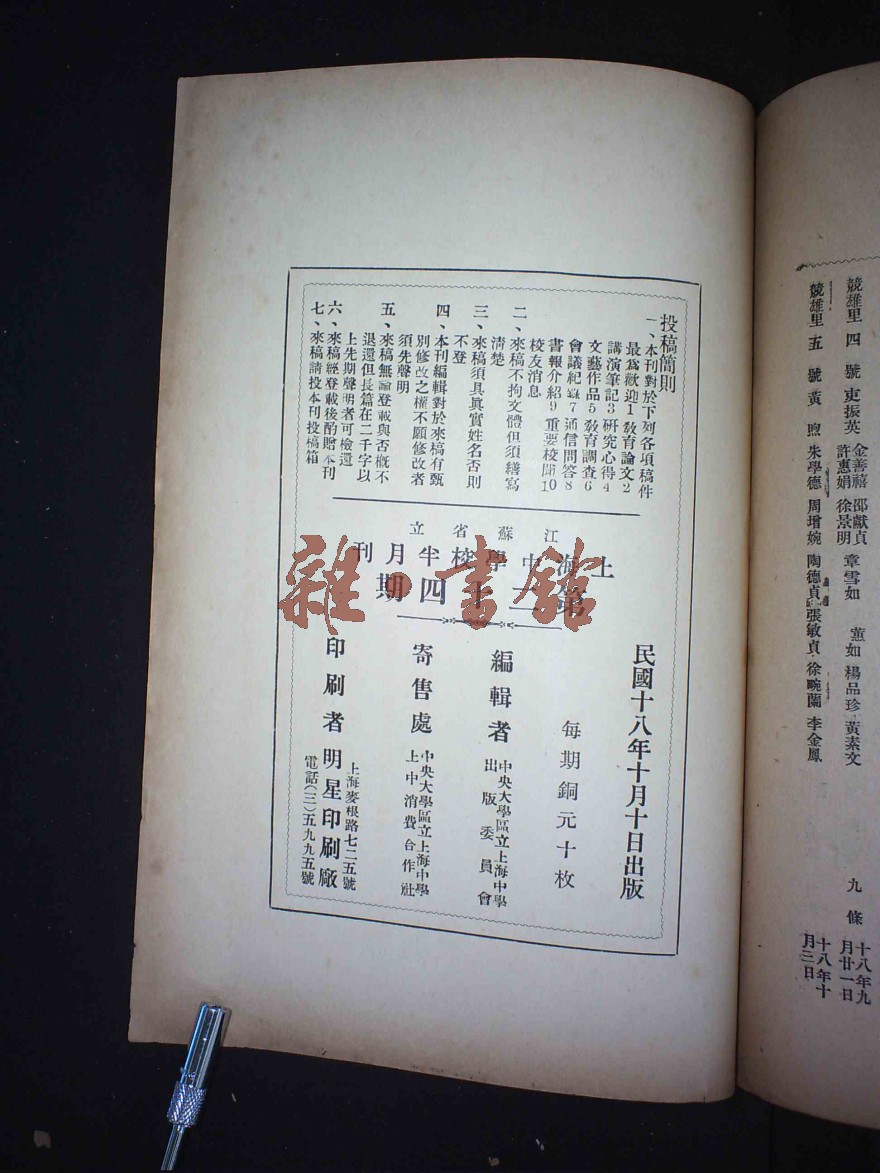 競雄里 四 號 東振英 金善禧 邵獻貞 章雪如 蕙如 楊品珍 黃素文 九 條 十八年九月廿一日
許惠娟 徐景明
競雄里 五 號 黃 煦 朱學德 周增婉 陶德貞 張敏貞 徐畹蘭 李金鳳 十八年十月二日
投稿簡則
一、本刊對於下列各項稿件
最爲歡迎1敎育論文2
講演筆記3研究心得4
文藝作品5敎育調查6
會議紀錄7通信問答8
書報介紹9重要校聞10
校友消息
二、來稿不拘文體但須繕寫
淸楚
三、來稿須具眞實姓名否則
不登
四、本刊編輯對於來稿有甄
別修改之權不願修改者
須先聲明
五、來稿無論登載與否槪不
退還但長篇在二千字以
上先期聲明者可檢還
六、來稿經登載後酌贈本刊
七、來稿請投本刊投稿箱
江蘇省立
上海中學校半月刊
第二十四期
民國十八年十月十日出版
每期銅元十枚
編輯者 中央大學區立上海中學
出版委員會
寄售處 中央大學區立上海中學
上中消費合作社
印刷者 明星印刷廠
上海麥根路七二五號
電話(三)五九九五號
雜·書館